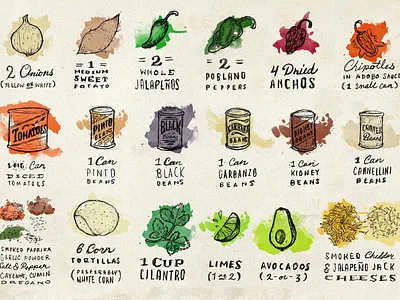 2 Onions
(YELLOW OR WHITE)
= 1 =
MEDIUM
SWEET
POTATO
= 2 =
WHOLE
JALAPEÑOS
= 2 =
POBLANO
PEPPERS
4 Dried
ANCHOS
Chipotles
IN ADOBO SAUCE
(1 small can)
TOMATOES
1 Can
DICED
TOMATOES
PINTO
1 Can
PINTO
BEANS
BLACK
1 Can
BLACK
BEANS
GARBANZO
BEANS
1 Can
GARBANZO
BEANS
KIDNEY
BEANS
1 Can
KIDNEY
BEANS
Beans
1 Can
CANNELLINI
BEANS
SMOKED PAPRIKA
GARLIC POWDER
Salt & Pepper
CAYENNE, CUMIN
OREGANO
6 Corn
TORTILLAS
(PREFERABLY)
WHITE CORN
1 CUP
CILANTRO
LIMES
(1 or 2)
AVOCADOS
(2-or-3)
SMOKED Cheddar
& JALAPEÑO JACK
CHEESES